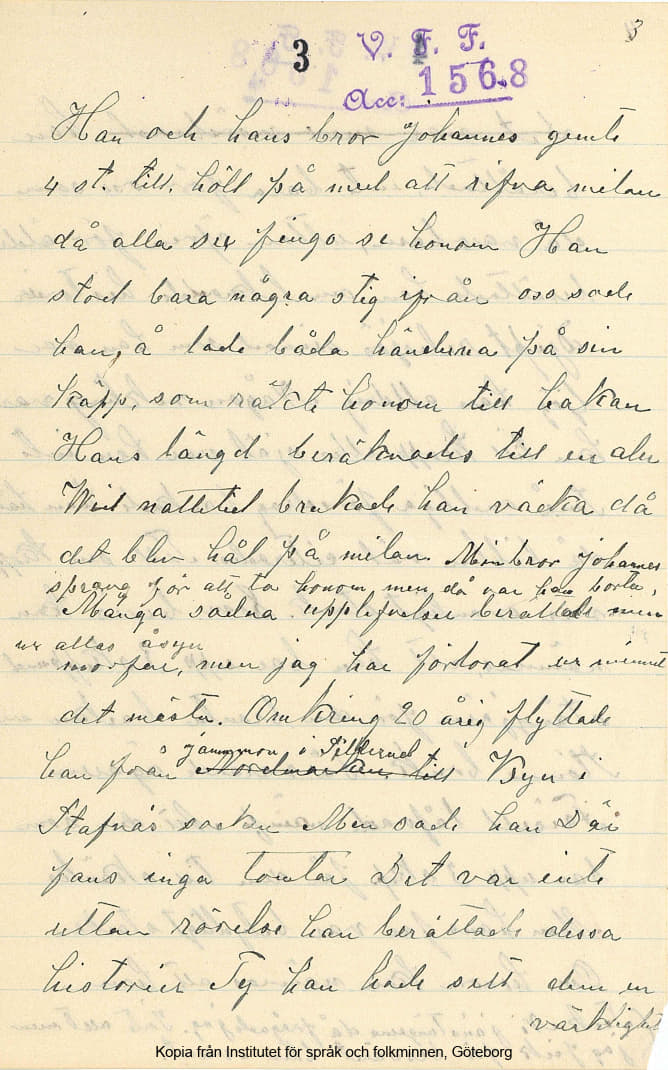 3
3 V. F. F.
Acc: 1568
Han och hans bror Johannes gemte
4 st. till. höll på med att rifva milan
då alla sex fingo se honom Han
stod bara några stig ifrån oss sade
han, å lade båda händerna på sin
käpp, som räkte honom till hakan
Hans längd beräknades till en aln
Wid nattetid brukade han väcka då
det blev hål på milan. Min bror Johannes
sprang för att ta honom men då var han borta,
Många sadna upplefvelser berättade min
ur allas åsyn
morfar, men jag har förlorat ur minnet
det mästa. Omkring 20 årig flyttade
s Jammron i Sillerud
han från Nordmarken till Byn i
Stafnäs socken Men sade han Där
fans inga tomtar Det var inte
uttan rörelse han berättade dessa
historier Ty han hade sett dem ur
värklighet
Kopia från Institutet för språk och folkminnen, Göteborg